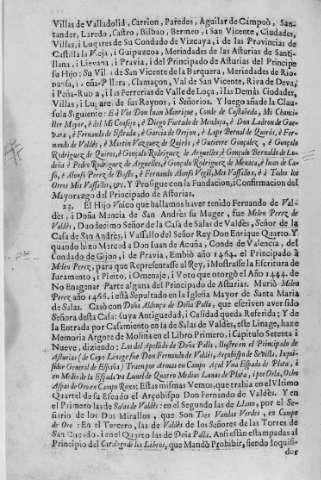 Villas de Valladolid, Carrion, Paredes, Aguilar de Campoò, San-
tander, Laredo, Castro, Bilbao, Bermeo, i San Vicente, Ciudades,
Villas, i Lugares de su Condado de Vizcaya, i de las Provincias de
Castilla la Vieja, i Guipuzcoa, Merindades de las Asturias de Santi-
llana, i Lievana, i Pravia, i del Principado de Asturias del Principe
su Hijo: Su Villa de San Vicente de la Barquera, Merindades de Rio-
nansa, i Peña-Mellera, Val de San Vicente, Riva de Deva,
i Peña-Rubia, i las Ferrerias de Valle de Loça, i las Demàs Ciudades,
Villas, i Lugares de sus Reynos, i Señorios. Y luego añade la Clau-
sula Siguiente: E à Vos Don Juan Manrique, Conde de Castañeda, Mi Chanci-
ller Mayor, è del Mi Consejo, è Diego Furtado de Mendoza, è Don Ladron de Gue-
vara, è Fernando de Estrada, è Garcia de Orejon, è Lope Bernal de Quiròs, è Fernan-
do de Valdès, è Martin Vazquez de Quiròs, è Gutierre Gonçalez, è Gonçalo
Rodriguez de Quiros, è Gonçalo Rodriguez de Arguelles, è Gonçalo Bernaldo de Lo-
días è Pedro Rodriguez de Arguelles, è Gonçalo Rodriguez de Mentes, è Juan de Ca-
so, è Alonso Perez de Buste, è Fernando Alonso Vigil, Mis Vassallos, è à Todos los
Otros Mis Vassallos, &c. Y Prosigue con la Fundacion, i Confirmacion del
Mayorazgo del Principado de Asturias.
22. El Hijo Vnico que hallamos haver tenido Fernando de Val-
dès, i Doña Mancia de San Andrès su Muger, fue Melen Perez de
Valdès, Duodezimo Señor de la Casa de Salas de Valdès, Señor de la
Casa de San Andrès, i Vassallo del Señor Rey Don Enrique Quarto. Y
quando hizo Merced a Don Juan de Acuña, Conde de Valencia, del
Condado de Gijon, i de Pravia, Embiò año 1464. el Principado à
Melen Perez, para que Representasse al Rey, i Mostrasse la Escritura de
Juramento, i Pleito, i Omenaje, i Voto que otorgò el Año 1444. de
No Enagenar Parte alguna del Principado de Asturias. Muriò Melen
Perez año 1466. i està Sepultado en la Iglesia Mayor de Santa Maria
de Salas. Casò con Doña Aldonça de Doña Palla, que escriven aver sido
Señora desta Casa: cuya Antiguedad, i Calidad queda Referida; Y de
la Entrada por Casamiento en la de Salas de Valdès, este Linage, haze
Memoria Argote de Molina en el Libro Primero, i Capitulo Setenta i
Nueve, diziendo: Los del Apellido de Doña Palla, Ilustre en el Principado de
Asturias (de Cuyo Linage fue Don Fernando de Valdès, Arçobispo de Sevilla, Inqui-
sidor General de España) Traen por Armas en Campo Azul Vna Espada de Plata, i
en Medio de la Espada vn Lunel de Quatro Medias Lunas de Plata, i por Orla, Ocho
Aspas de Oro en Campo Roxo: Estas mismas Vemos, que trahia en el Vltimo
Quartel de su Escudo el Arçobispo Don Fernando de Valdès. Y en
el Primero las de Salas de Valdès: en el Segundo las de Llano, por el Se-
ñorio de los Dos Mirallos, que Son Tres Vandas Verdes, en Campo
de Oro: En el Tercero, las de Valdès de los Señores de las Torres de
San Cucado: i en el Quarto las de Doña Palla. Ansi estàn estampadas al
Principio del Catalogo de los Libros, que Mandò Prohibir, siendo Inqui-
dor